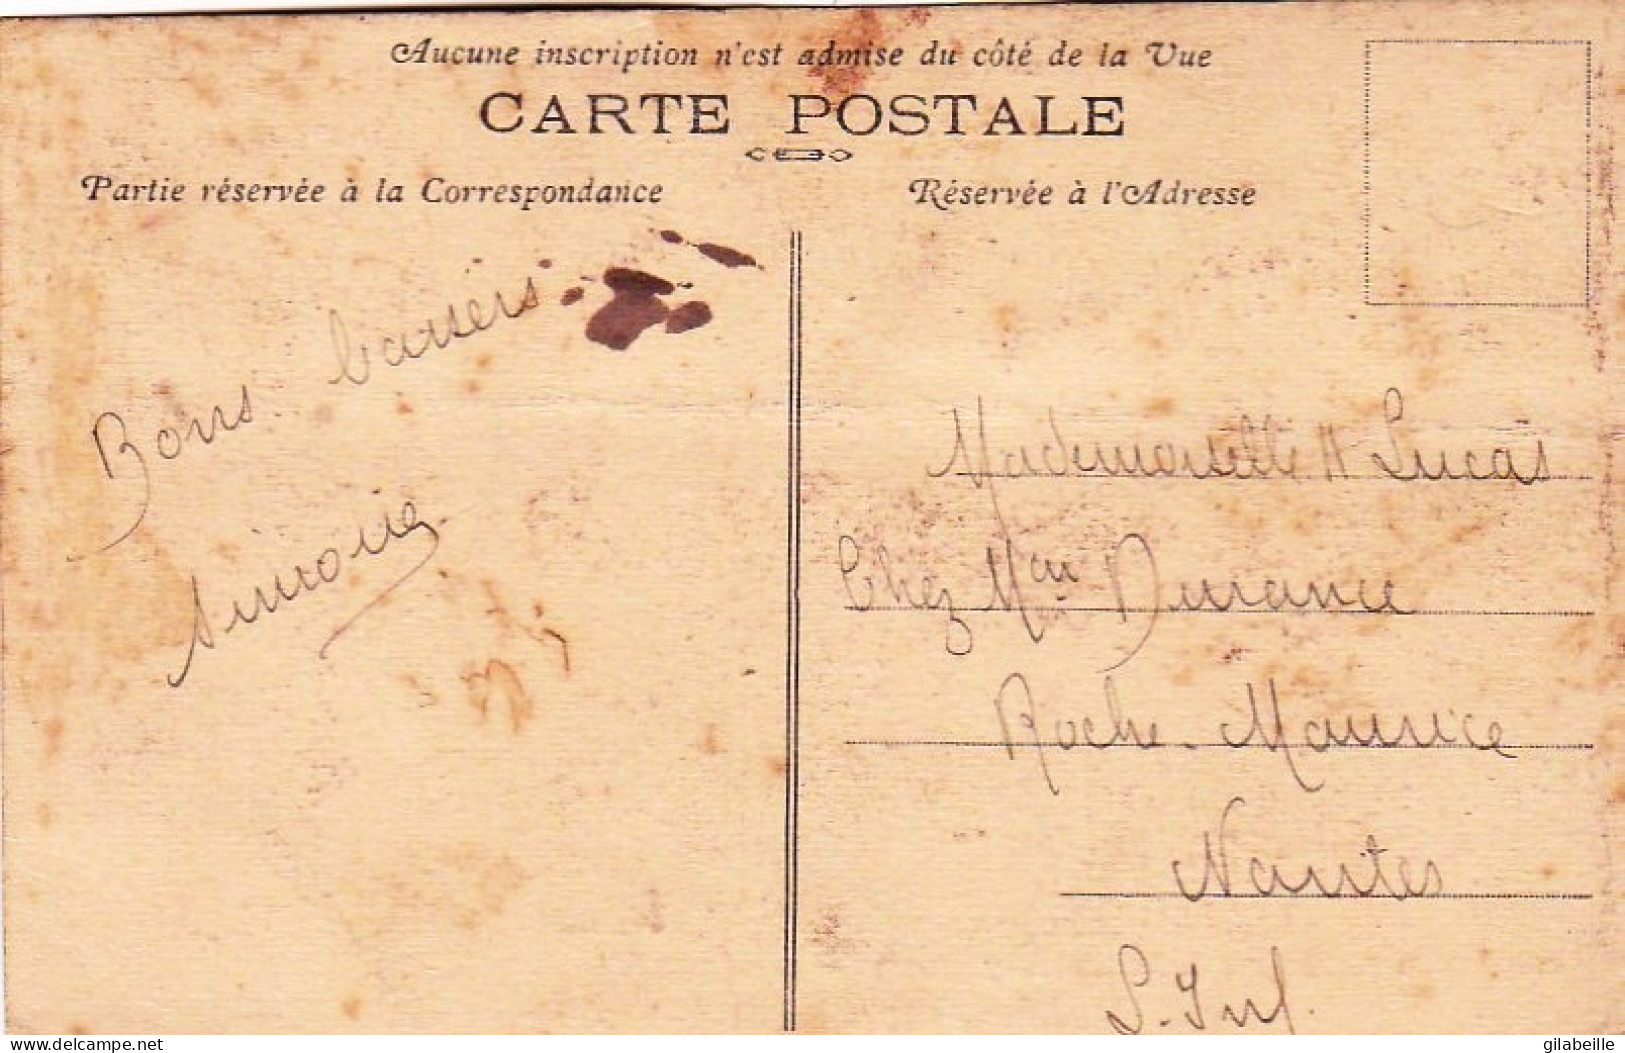 Aucune inscription n'est admise du côté de la Vue
CARTE POSTALE
Partie réservée à la Correspondance
Réservée à l'Adresse
Bons baisers
Simone
Mademoiselle H Lucas
Chez Mme Durance
Roche-Maurice
Nantes
L. Inf.
delcampe.net
gilabeille